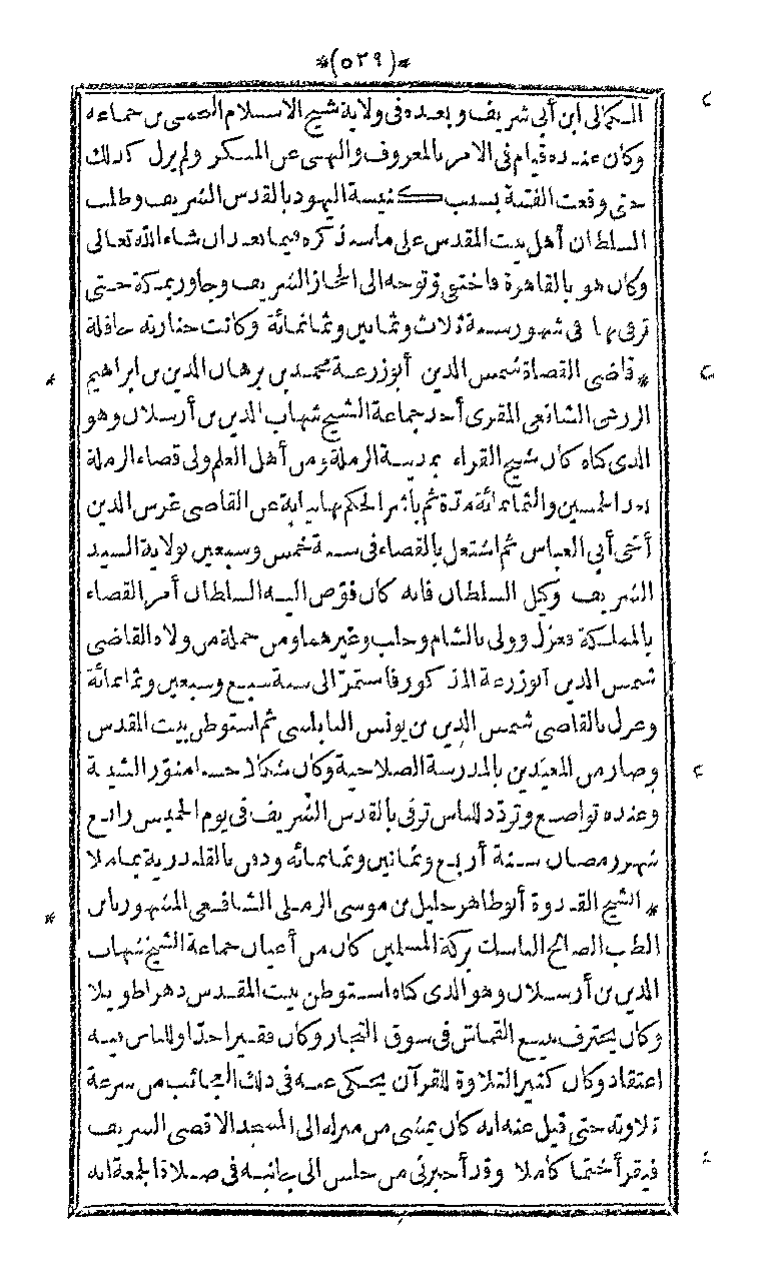 *(٥٣٩)*
الكمالى ابن أبى شريف وبعده فى ولاية شيخ الاسلام النجمى بن جماعه
وكان عنده قيام فى الامر بالمعروف والنهى عن المنكر ولم يزل كذلك
حتى وقعت الفتنة بسبب كنيسة اليهود بالقدس الشريف وطلب
السلطان أهل بيت المقدس على ما سنذكره فيما بعد ان شاء الله تعالى
وكان هو بالقاهرة فاختفى وتوجه الى الحجاز الشريف وجاور بمكة حتى
توفى بها فى شهور سنة ثلاث وثمانين وثمانمائة وكانت جنازته حافلة
* قاضى القضاة شمس الدين أبو زرعة محمد بن برهان الدين بن ابراهيم
الزرعى الشافعى المقرى أحد جماعة الشيخ شهاب الدين بن أرسلان وهو
الذى كناه كان شيخ القراء بمدينة الرملة ومن أهل العلم ولى قضاء الرملة
بعد الخمسين والثمانمائة مدة ثم باشر الحكم بها نيابة عن القاضى غرس الدين
أخى أبى العباس ثم اشتغل بالقضاء فى سنة خمس وسبعين بولاية السيد
الشريف وكيل السلطان فانه كان فوّض اليه السلطان أمر القضاء
بالمملكة فعزل وولى بالشام وحلب وغيرهما ومن جملة من ولاه القاضى
شمس الدين أبو زرعة المذكور فاستمرّ الى سنة سبع وسبعين وثمانمائة
وعزل بالقاضى شمس الدين بن يونس النابلسى ثم استوطن بيت المقدس
وصار من المعيدين بالمدرسة الصلاحية وكان شكلا حسنا منوّر الشيبة
وعنده تواضع وتردّد للناس توفى بالقدس الشريف فى يوم الخميس رابع
شهر رمضان سنة أربع وثمانين وثمانمائه ودفن بالقلندرية بماملا
* الشيخ القدوة أبو طاهر خليل بن موسى الرملى الشافعى المشهور بابن
الصالح الناسك بركة المسلمين كان من أعيان جماعة الشيخ شهاب
الدين بن أرسلان وهو الذى كناه استوطن بيت المقدس دهرا طويلا
وكان يحترف ببيع القماش فى سوق التجار وكان فقيرا جدّا وللناس فيه
اعتقاد وكان كثير التلاوة للقرآن يحكى عنه فى ذلك العجائب من سرعة
تلاوته حتى قيل عنه انه كان يمشى من منزله الى المسجد الاقصى الشريف
فيقرأ ختما كاملا وقد أخبرنى من جلس الى جانبه فى صلاة الجمعة انه